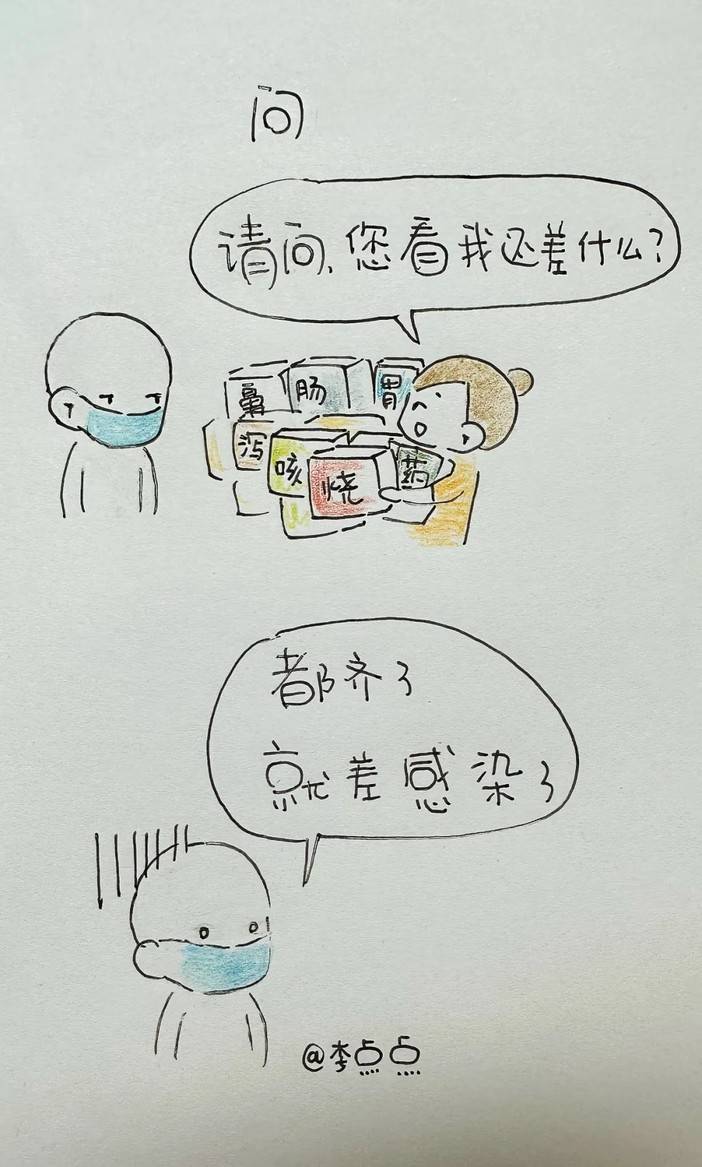 问
请问、您看我还差什么？
鼻
肠
胃
泻
咳
烧
药
都齐了
就差感染了
@李点点